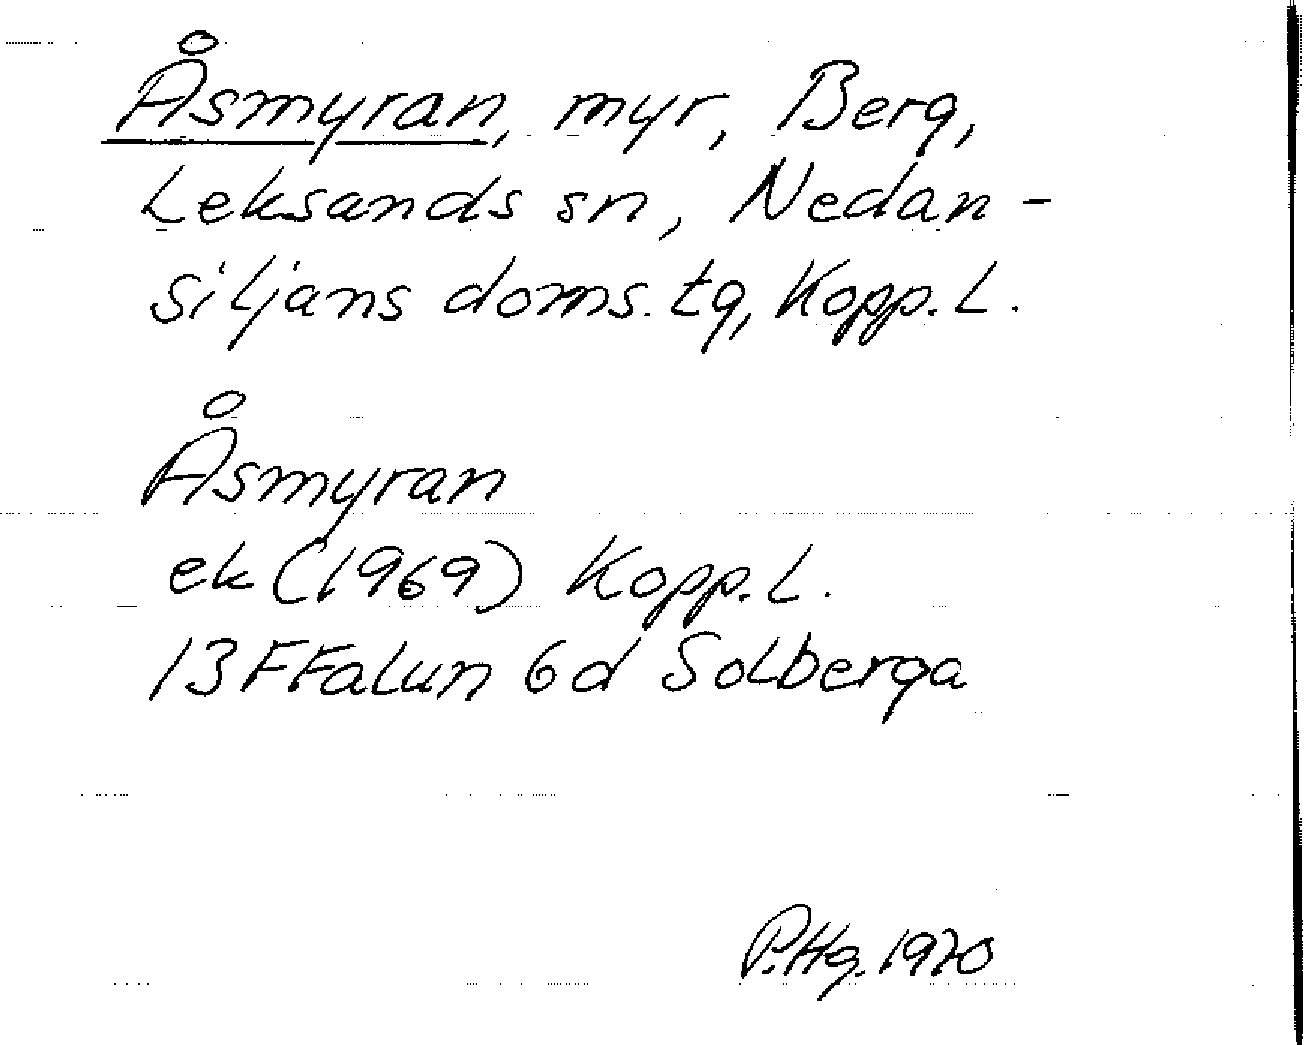 Åsmyran, myr, Berg,
Leksands sn, Nedan-
siljans doms. tg, Kopp. L.
Åsmyran
ek (1969) Kopp. L.
13F Falun 6d Solberga
P.Hg. 1970